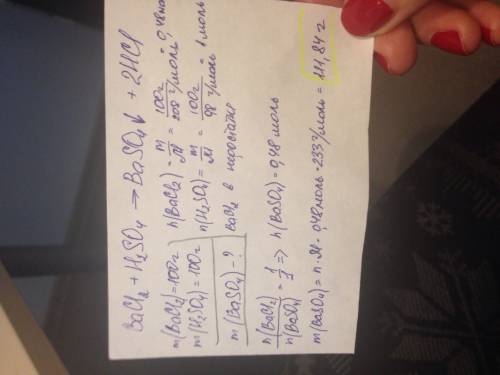 BaCl₂ + H₂SO₄ → BaSO₄↓ + 2HCl
m(BaCl₂)=100г
m(H₂SO₄)=100г
m(BaSO₄)-?
n(BaCl₂) = m/M = 100г/208 г/моль = 0,48моль
n(H₂SO₄) = m/M = 100г/98 г/моль = 1 моль
BaCl₂ в недостатке
n(BaCl₂)/n(BaSO₄) = 1/1 => n(BaSO₄) = 0,48 моль
m(BaSO₄) = n·M = 0,48моль·233 г/моль = 111,84 г